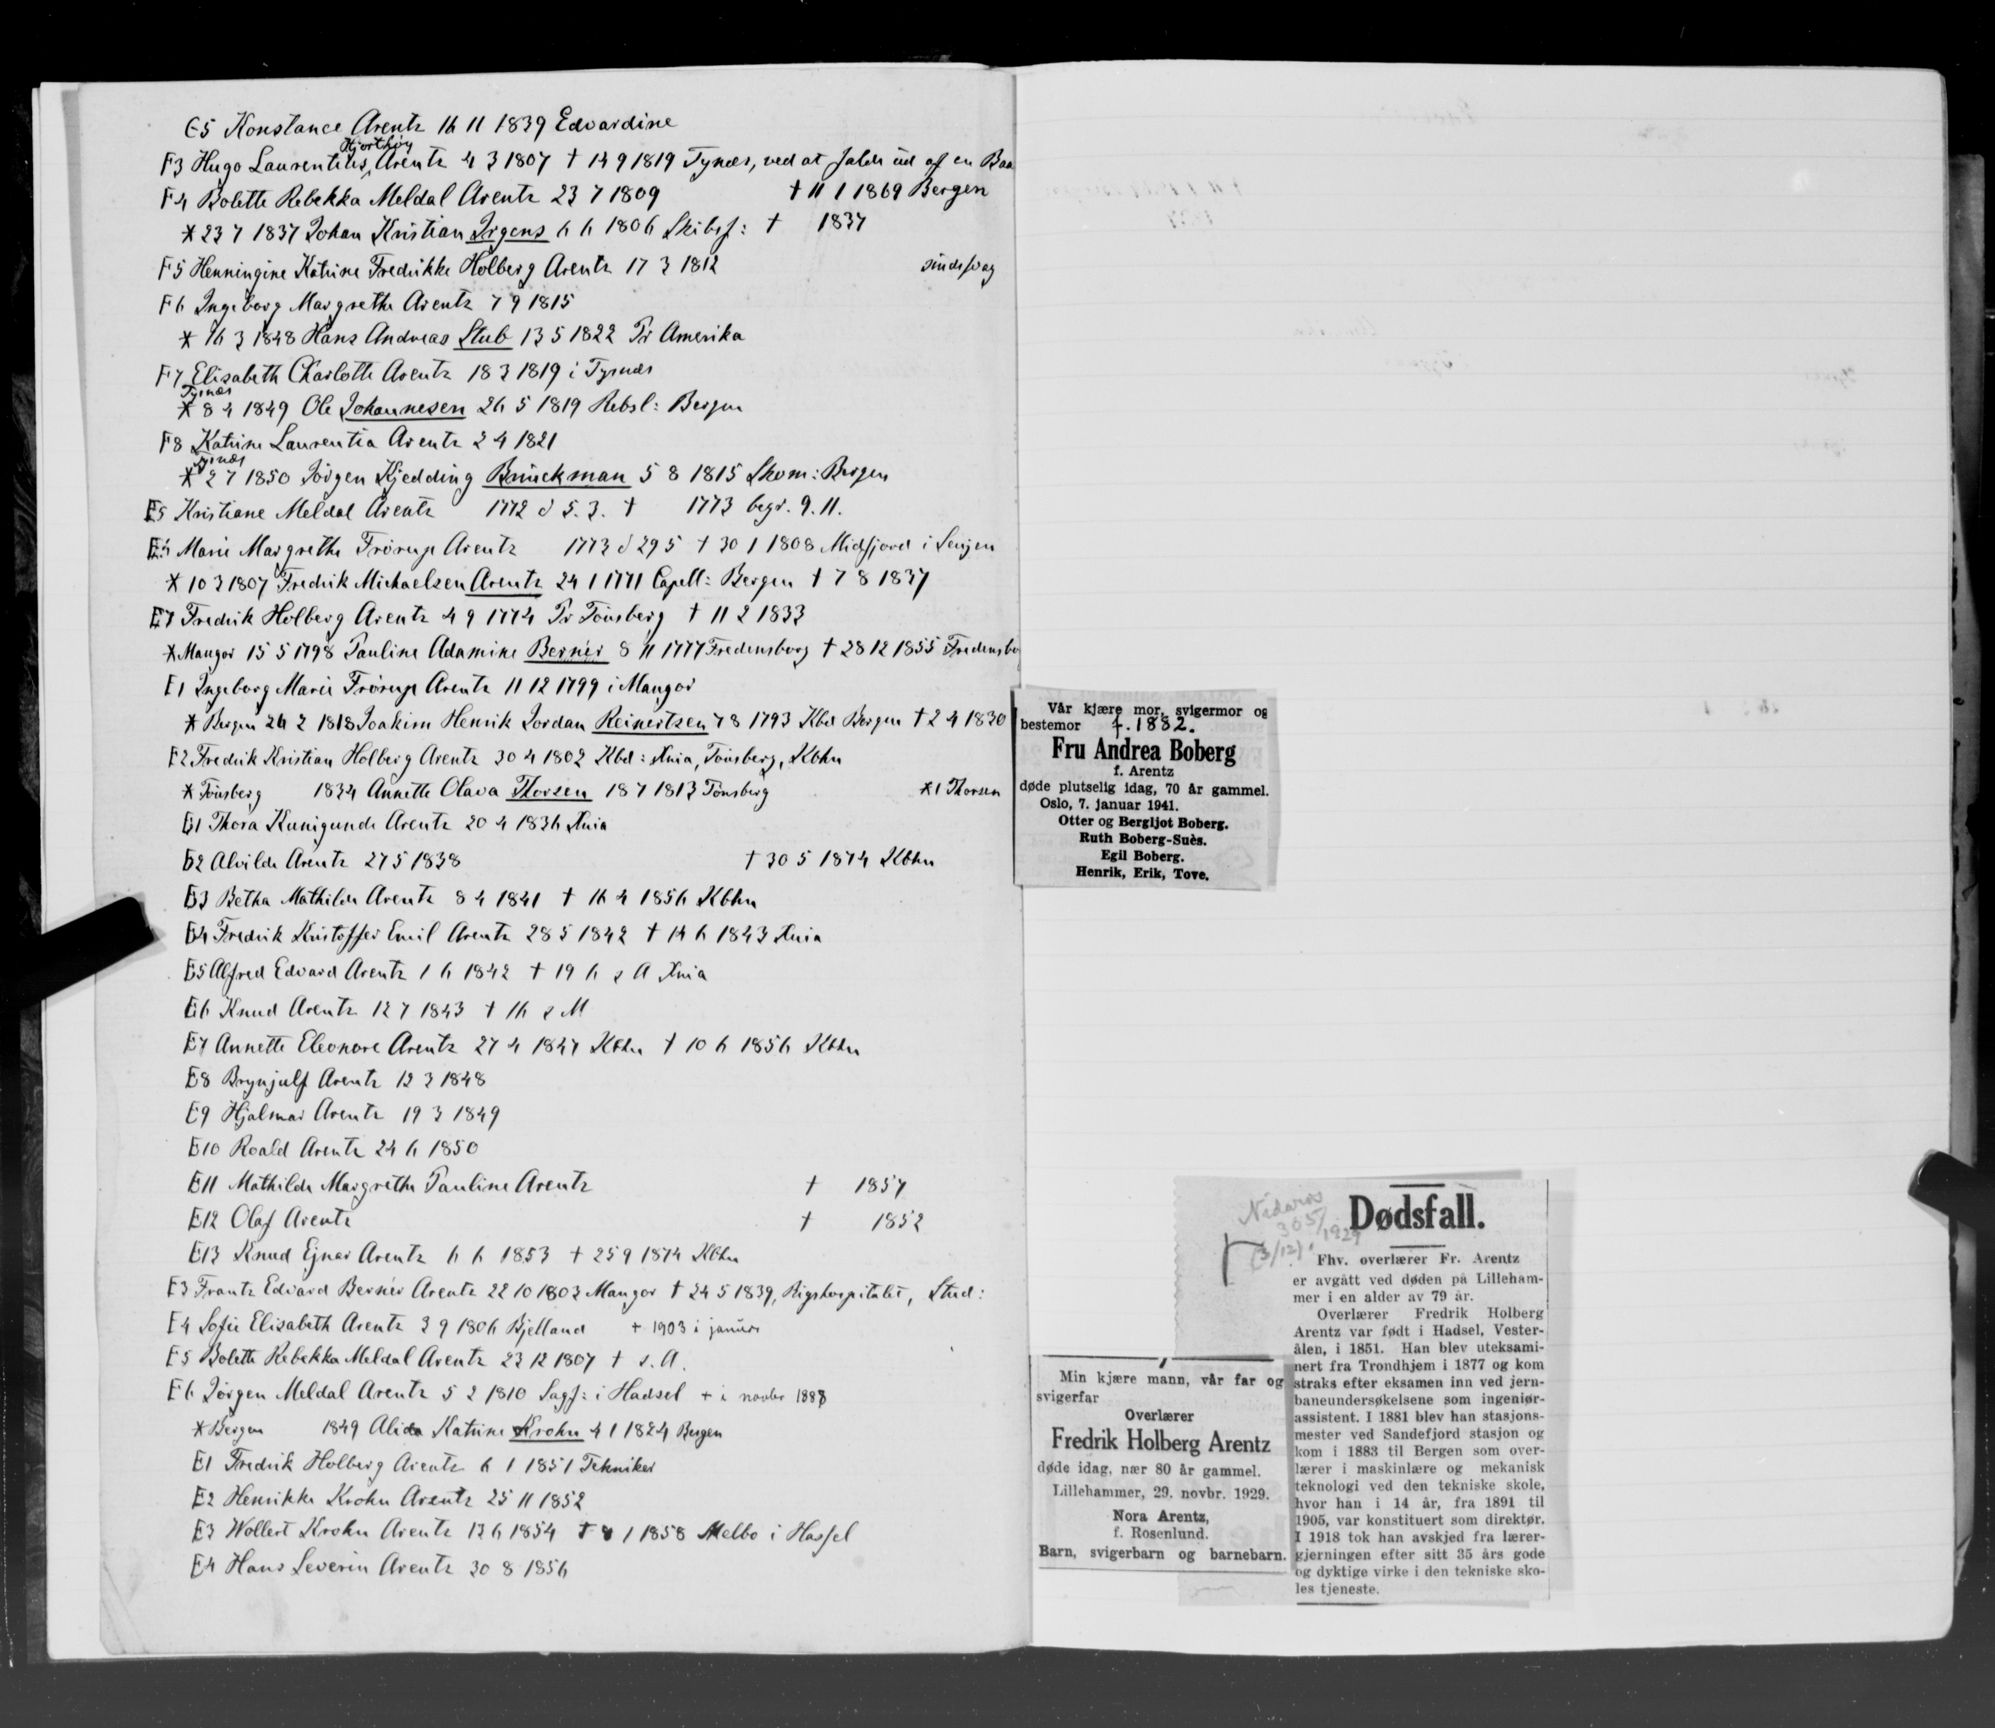 G5 Konstance Arentz 16 11 1839 Edvardine
Hjorthøy
F3 Hugo Laurentius, Arentz 4 3 1807 † 14 9 1819 Tysnes, ved at falde ud af en Baa
F4 Bolette Rebekka Meldal Arentz 23 7 1809 † 11 1 1869 Bergen
* 23 7 1837 Johan Kristian Irgens 6 6 1806 Skibsf: † 1837
F5 Henningine Katrine Fredrikke Holberg Arentz 17 3 1812 sindssvag
F6 Ingeborg Margrethe Arentz 7 9 1815
* 16 3 1848 Hans Andreas Stub 13 5 1822 Pr Amerika
F7 Elisabeth Charlotte Arentz 18 3 1819 i Tysnæs
Tysnæs
* 8 4 1849 Ole Johannesen 26 5 1819 Rebsl: Bergen
F8 Katrine Laurentia Arentz 2 4 1821
Tysnæs
* 2 7 1850 Jörgen Kjedding Brückman 5 8 1815 Skom: Bergen
E5 Kristiane Meldal Arentz 1772 d 5. 3. † 1773 begr. 9. 11.
E6 Marie Margrethe Frørup Arentz 1773 d 29 5 † 30 1 1808 Midfjord i Senjen
* 10 3 1807 Fredrik Michaelsen Arentz 24 1 1771 Capell: Bergen † 7 8 1837
E7 Fredrik Holberg Arentz 4 9 1774 Pr Tönsberg † 11 2 1833
* Mangor 15 5 1798 Pauline Adamine Bernér 8 11 1777 Fredensborg † 28 12 1855 Fredensbo
F1 Ingeborg Marie Frørup Arentz 11 12 1799 i Mangor
* Bergen 26 2 1818 Joakim Henrik Jordan Reinertzen 7 8 1793 Kbd Bergen † 2 4 1830
F2 Fredrik Kristian Holberg Arentz 30 4 1802 Kbd: Xnia, Tönsberg, Kbhn
* Tönsberg 1834 Annette Olava Thorsen 18 7 1813 Tönsberg *1 Thorsen
G1 Thora Kunigunde Arentz 20 4 1836 Xnia
G2 Alvilde Arentz 27 5 1838 † 30 5 1874 Kbhn
G3 Betha Mathilde Arentz 8 4 1841 † 16 4 1856 Kbhn
G4 Fredrik Kristoffer Emil Arentz 28 5 1842 † 14 6 1843 Xnia
G5 Alfred Edvard Arentz 1 6 1842 † 19 6 s A Xnia
G6 Knud Arentz 12 7 1843 † 16 s M
G7 Annette Eleonore Arentz 27 4 1847 Kbhn † 10 6 1856 Kbhn
G8 Brynjulf Arentz 12 3 1848
G9 Hjalmar Arentz 19 3 1849
G10 Roald Arentz 24 6 1850
G11 Mathilde Margrethe Pauline Arentz † 1857
G12 Olaf Arentz † 1852
G13 Knud Ejnar Arentz 6 6 1853 † 25 9 1874 Kbhn
F3 Frantz Edvard Bernér Arentz 22 10 1803 Mangor † 24 5 1839, Rigshospitalet, Stud:
F4 Sofie Elisabeth Arentz 3 9 1806 Bjelland + 1903 i januar
F5 Bolette Rebekka Meldal Arentz 23 12 1807 † s. A.
F6 Jörgen Meldal Arentz 5 2 1810 Sagf: i Hadsel + i novbr 1888
* Bergen 1849 Alida Katrine Krohn 4 1 1824 Bergen
G1 Fredrik Holberg Arentz 6 1 1851 Tekniker
G2 Henrikke Krohn Arentz 25 11 1852
G3 Wollert Krohn Arentz 13 6 1854 † 8 1 1858 Melbo i Hassel
G4 Hans Severin Arentz 30 8 1856
Vår kjære mor, svigermor og
bestemor f. 1882.
Fru Andrea Boberg
f. Arentz
døde plutselig idag, 70 år gammel.
Oslo, 7. januar 1941.
Otter og Bergljot Boberg.
Ruth Boberg-Suès.
Egil Boberg.
Henrik, Erik, Tove.
Min kjære mann, vår far og
svigerfar
Overlærer
Fredrik Holberg Arentz
døde idag, nær 80 år gammel.
Lillehammer, 29. novbr. 1929.
Nora Arentz,
f. Rosenlund.
Barn, svigerbarn og barnebarn.
Nidaros
305/1929
(3/12)
Dødsfall.
Fhv. overlærer Fr. Arentz
er avgått ved døden på Lilleham-
mer i en alder av 79 år.
Overlærer Fredrik Holberg
Arentz var født i Hadsel, Vester-
ålen, i 1851. Han blev uteksami-
nert fra Trondhjem i 1877 og kom
straks efter eksamen inn ved jern-
baneundersøkelsene som ingeniør-
assistent. I 1881 blev han stasjons-
mester ved Sandefjord stasjon og
kom i 1883 til Bergen som over-
lærer i maskinlære og mekanisk
teknologi ved den tekniske skole,
hvor han i 14 år, fra 1891 til
1905, var konstituert som direktør.
I 1918 tok han avskjed fra lærer-
gjerningen efter sitt 35 års gode
og dyktige virke i den tekniske sko-
les tjeneste.